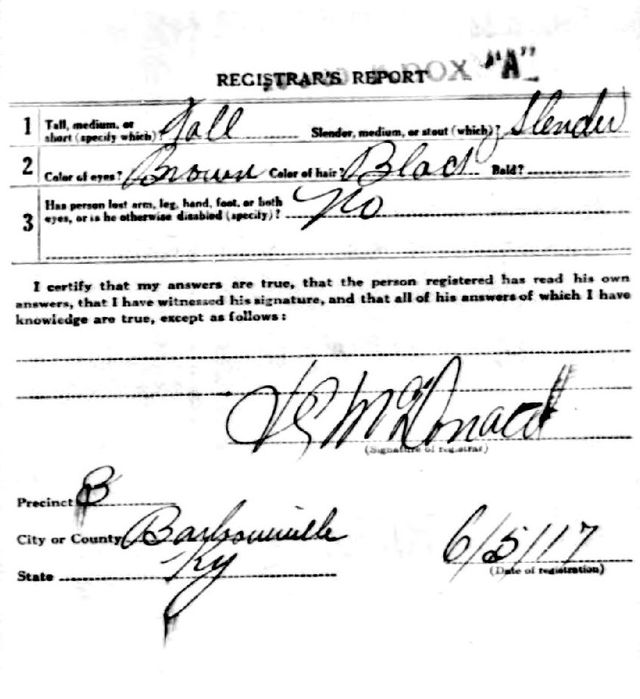 REGISTRAR'S REPORT BOX "A"
1 Tall, medium, or short (specify which)? Tall Slender, medium, or stout (which)? Slender
2 Color of eyes? Brown Color of hair? Black Bald?
3 Has person lost arm, leg, hand, foot, or both eyes, or is he otherwise disabled (specify)? No
I certify that my answers are true, that the person registered has read his own
answers, that I have witnessed his signature, and that all of his answers of which I have
knowledge are true, except as follows:
McDonald
(Signature of registrar)
Precinct B
City or County Barbourville
State Ky
6/5/17
(Date of registration)